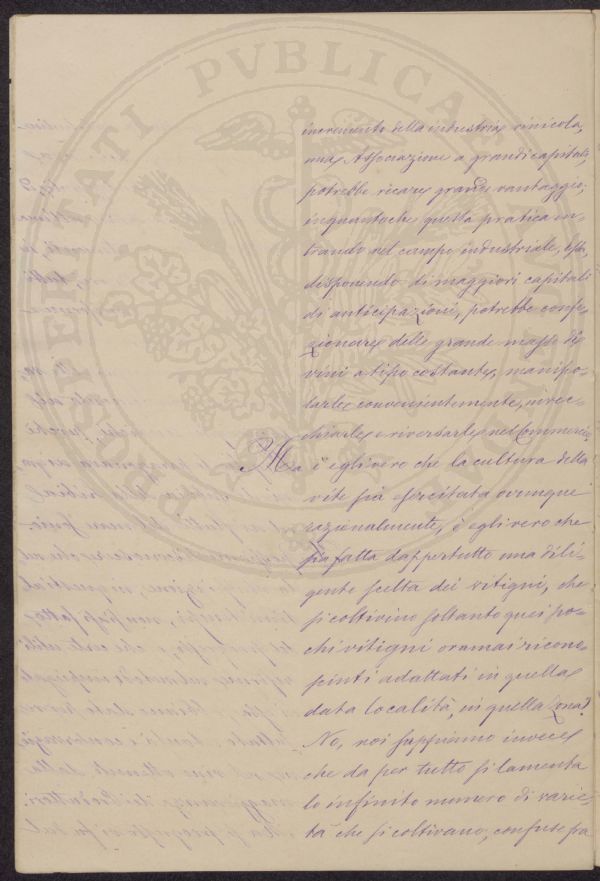 incremento della industria vinicola,
una Associazione a grandi capitali
potrebbe recare grande vantaggio;
inquantochè questa pratica en-
trando nel campo industriale, Essa,
disponendo di maggiori capitali
di anticipazioni, potrebbe confe-
zionare delle grande masse di
vini a tipo costante, manipo-
larle convenientemente, invec-
chiarle e riversarle nel Commercio
Ma è egli vero che la cultura della
vite sia esercitata ovunque
razionalmente, è egli vero che
sia fatta dappertutto una dili-
gente scelta dei vitigni, che
si coltivino soltanto quei po-
chi vitigni oramai ricono-
sciuti adattati in quella
data località, in quella zona?
No, noi sappiamo invece
che da per tutto si lamenta
lo infinito numero di varie-
tà che si coltivano, confuse fra
PVBLICA